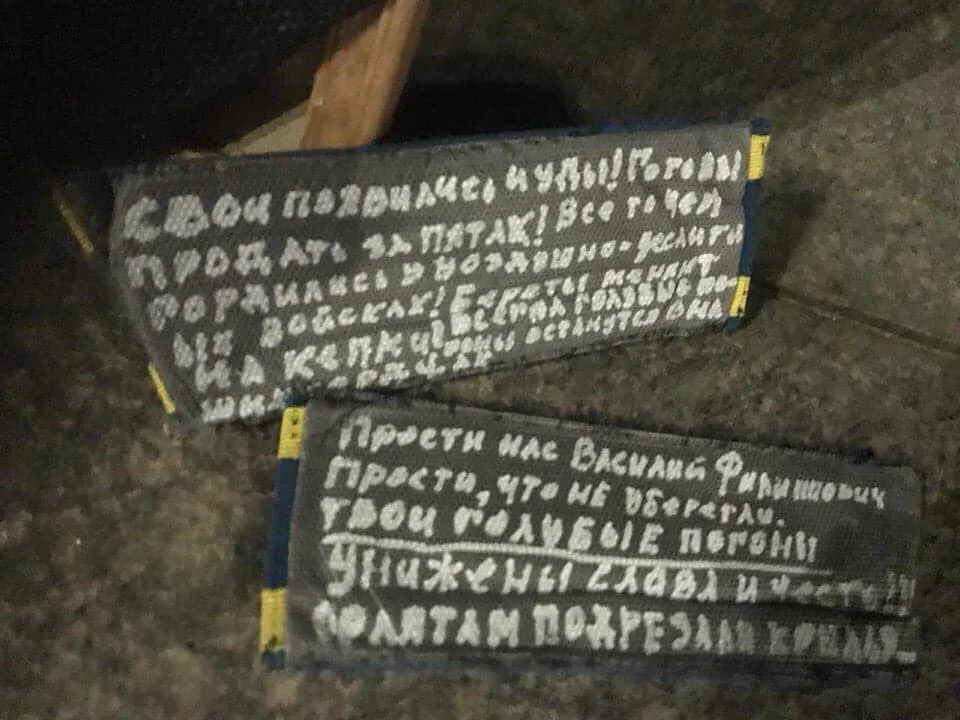 Свои появились иуды! Готовы
продать за пятак! Все то чем
гордились в воздушно-десантн
ых войсках! Береты меняют
на кепки!
останутся в на
Прости нас Василий Филиппович
Прости, что не уберегли.
твои голубые погоны
Унижены слава и честь!!!
Солдатам подрезали крылья